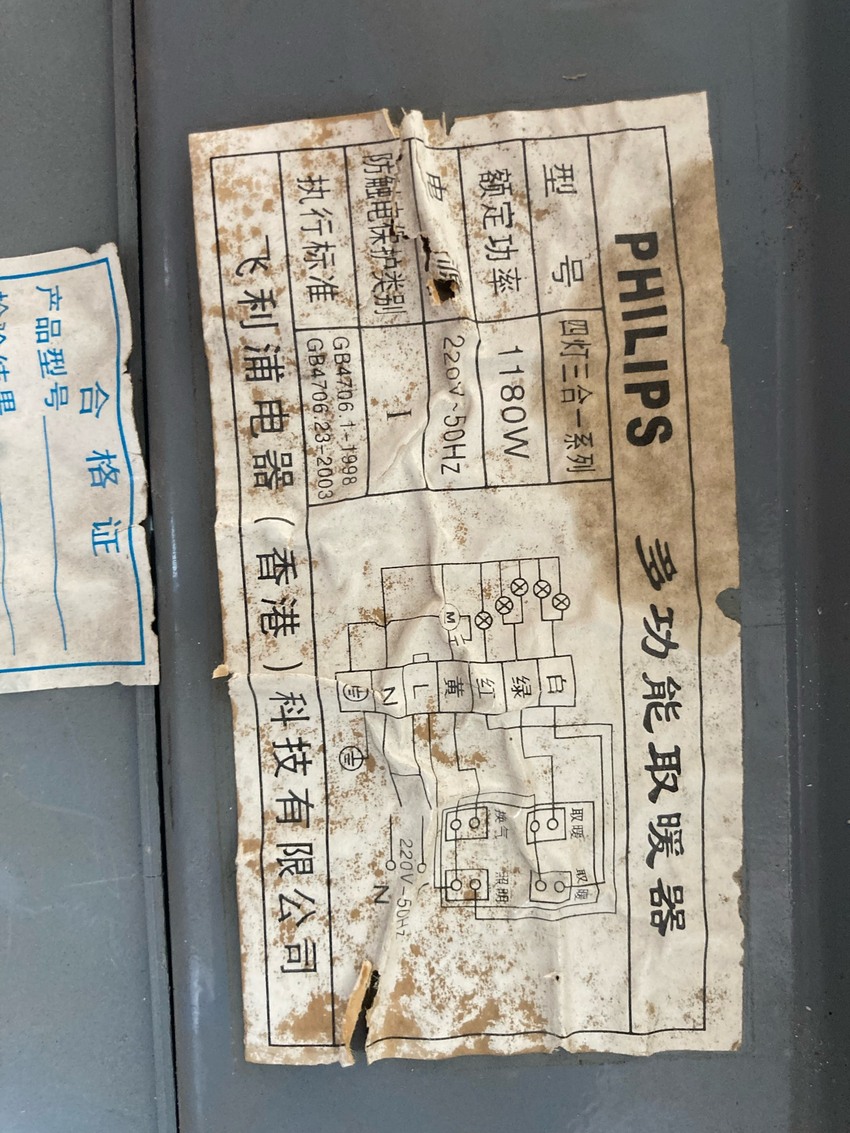 PHILIPS 多功能取暖器
型 号 四灯三合一系列
额定功率 1180W
电 源 220V~50HZ
防触电保护类别 I
执行标准 GB4706.1-1998
GB4706.23-2003
M
白
绿
红
黄
L
N
取暖 取暖
换气 照明
220V~50Hz
L
N
飞利浦电器(香港)科技有限公司
合格证
产品型号
检验结果